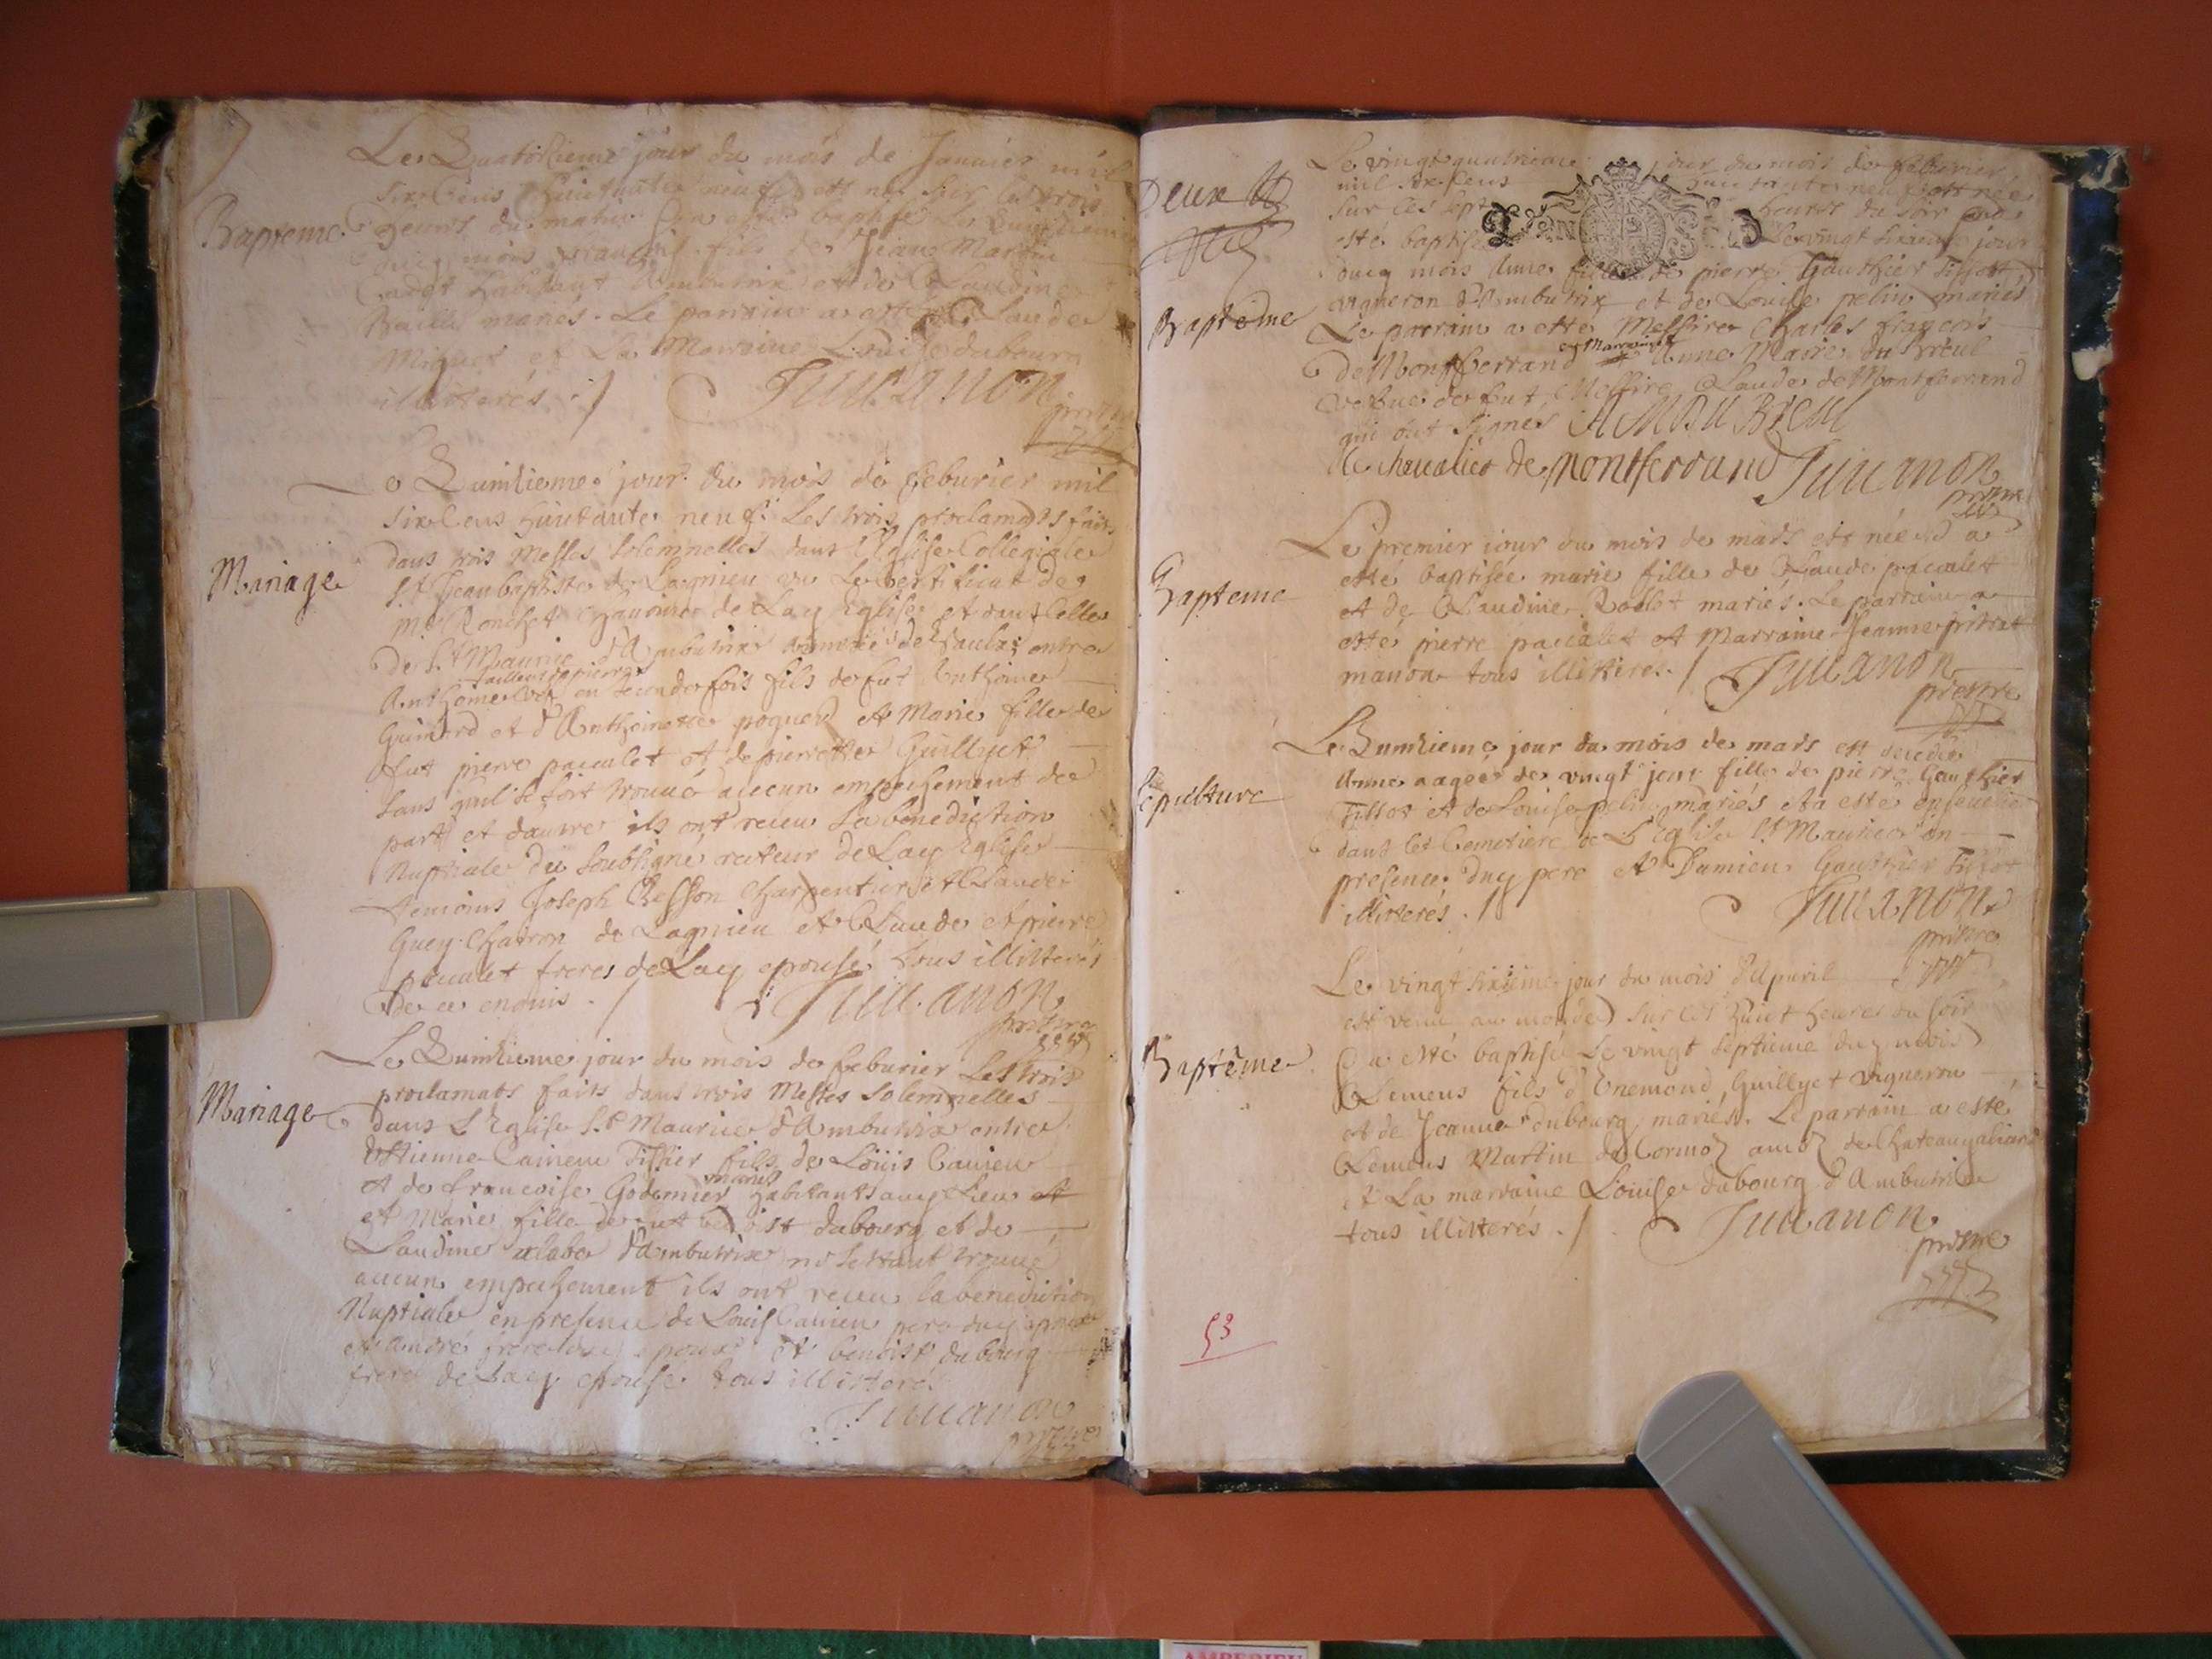 Le Quatorzieme jour du mois de Janvier mil
six cens huictante neuf est né sur les trois
Bapteme
heures du matin et a esté baptisé le Quinzieme
mois françois fils de Jean Martin
habitant d'Ambutrix et de Claudine
mariés. Le parrain a esté Claude
et La Marraine Louise dubourg
illitterés ./ Juuanon
prestre
Le Quinzieme jour du mois de feburier mil
six cens huictante neuf. Les trois proclamats faits
dans trois Messes solemnelles dans l'Eglise Collegiale
Mariage
St Jean baptiste de Lagnieu vu le certificat de
mre Ronchet chanoine de Lad Eglise et dans Celle
de St Maurice d'Ambutrix de Vaulx entre
tailleur de pierre
Anthoine en seconde fois fils de fut Anthoine
Guinard et d'Anthoinette poguet et Marie fille de
fut pierre pacalet et de pierrette Guillyet
sans quil se soit trouué aucun empechement de
part et dautre ils ont receu La benediction
Nuptiale du soubsigné recteur de Lad Eglise
temoins Joseph Chesson Charpentier et Claude
Guey Chatron de Lagnieu et Claude et pierre
pacalet freres de Lad epouse tous illitterés
de ce enquis ./ Juuanon
prestre
Le Quinzieme jour du mois de feburier Les trois
proclamats faits dans trois Messes solemnelles
Mariage
dans L'Eglise St Maurice d'Ambutrix entre
Ettienne Caineu Tissier fils de Loüis Cauieu
mariés
et de francoise Godemier habitants aud Lieu et
et Marie fille de fut benoist dubourg et de
Claudine d'Ambutrix ne sestant trouué
aucun empechement ils ont receu la benediction
Nuptiale en presence de Louis Cauieu pere dud epoux
et André frere dud epoux et benoist dubourg
frere de Lad epouse tous illitterés
Juuanon
prestre
Le vingt quatrieme jour du mois de feburier
mil six cens huictante neuf est née
Deux
sur les sept heures du soir et a
esté baptisée Le vingt sixieme jour
dud mois Anne fille de pierre Gauthier Tissot
Bapteme
vigneron d'Ambutrix et de Louise pelin mariés
Le parrain a esté Messire Charles françois
et Marraine
de Montferrand Anne Marie du Breul
vefue de fut Messire Claude de Montferrand
qui ont signés AM du Breul
le cheualier de montferrand Juuanon
prestre
Le premier jour du mois de mars est née et a
esté baptisée marie fille de Claude pacalet
Bapteme
et de Claudine mariés. Le parrain a
esté pierre pacalet et Marraine Jeanne
manon tous illitterés ./ Juuanon
prestre
Le Quinzieme jour du mois de mars est decedée
Anne aagée de vingt jour fille de pierre Gauthier
Sepulture
Tissot et de Louise pelin mariés et a esté enseuelie
dans le Cemetiere de L'Eglise St Maurice en
presence dud pere et Damien Gauthier Tissot
illitterés ./ Juuanon
prestre
Le vingt sixieme jour du mois d'Apuril
est venu au monde sur les huict heures du soir
Baptême
et a esté baptisé Le vingt septieme dud mois
Clemens fils d'Enemond Guillyet vigneron
et de Jeanne dubourg mariés. Le parrain a esté
Clemens Martin de Cormoz
et La marraine Louise dubourg d'Ambutrix
tous illitterés ./ Juuanon
prestre
53